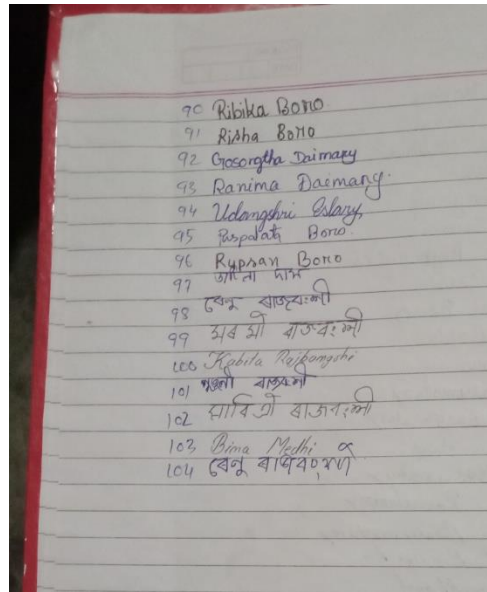 90 Ribika Boro
91 Risha Boro
92 Gosorngtha Daimary
93 Ranima Daimary.
94 Udangshri Eslary,
95 Puspalata Boro.
96 Rupsan Boro
97 দাস
98 ৰেনু ৰাজবংশী
99 ৰাজবংশী
100 Kabita Rajbangshi
101 ৰাজবংশী
102 সাবিত্ৰী ৰাজবংশী
103 Bima Medhi
104 ৰেনু ৰাজবংশী